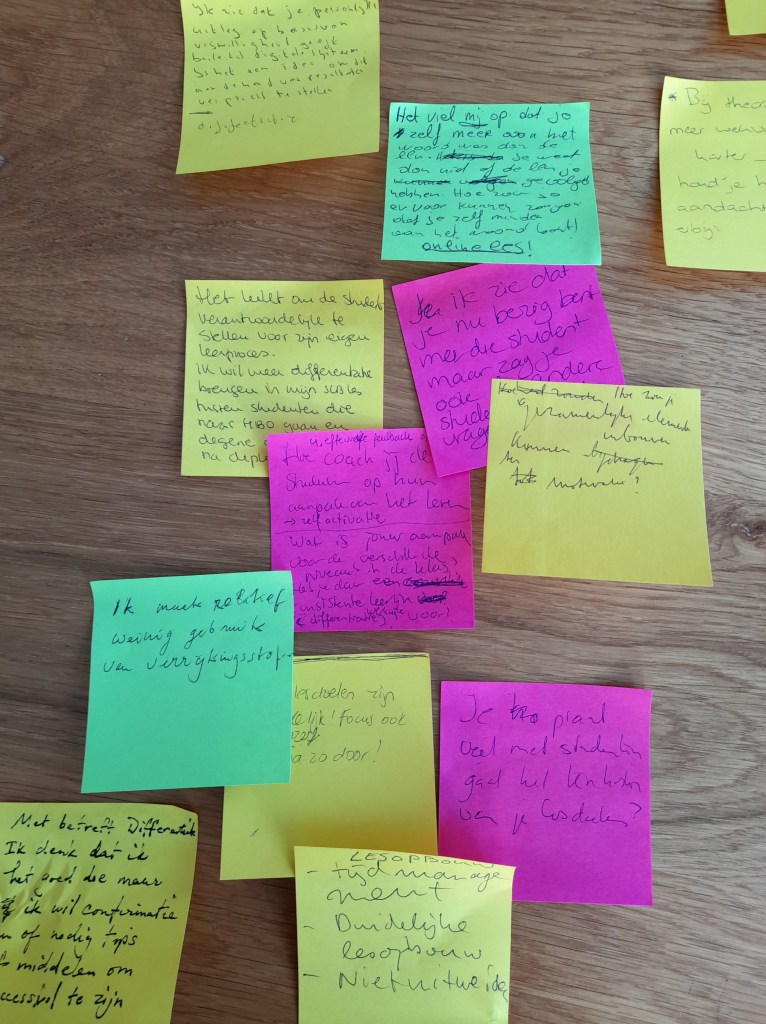 Ik zie dat je persoonlijke
uitleg op basis van
vrijwilligheid geeft
Is het een idee om dit
aan de hand van resultaten
verplicht te stellen
Het viel mij op dat je
zelf meer aan het
woord was dan de
lln. je weet
dan niet of de lln je
gevolgd
hebben. Hoe zou je
ervoor kunnen zorgen
dat je zelf minder
aan het woord bent?
online les!
* Bij theor
meer
korter
houd je h
aandacht
erbij?
Het lukt om de student
verantwoordelijk te
stellen voor zijn eigen
leerproces.
Ik wil meer differentiatie
brengen in mijn les
tussen studenten die
naar HBO gaan en
degene
na diplo
ik zie dat
je nu bezig bent
met die student
maar zag je
ook andere
stude
vrag
Hoe zou je
gezamenlijke elemente
inbouwen
kunnen
motivatie?
4. effectieve feedback
Hoe coach jij de
studenten op hun
aanpak van het leren
→ zelfactivatie
Wat is jouw aanpak
voor de verschillende
niveaus in de klas,
heb je daar een
consistente leerlijn
differentiatie voor?
Ik maak relatief
weinig gebruik
van verrijkingsstof
lesdoelen zijn
elijk! Focus ook
ga zo door!
Je praat
veel met studenten
gaat het ten koste
van je lesdoelen?
Met betreft Differentia
Ik denk dat ik
het goed doe maar
ik wil confirmatie
en of nodig tips
middelen om
ccesvol te zijn
LESOPBOUW
- tijdmanage
ment
- Duidelijke
lesopbouw
- Niet uitweiden